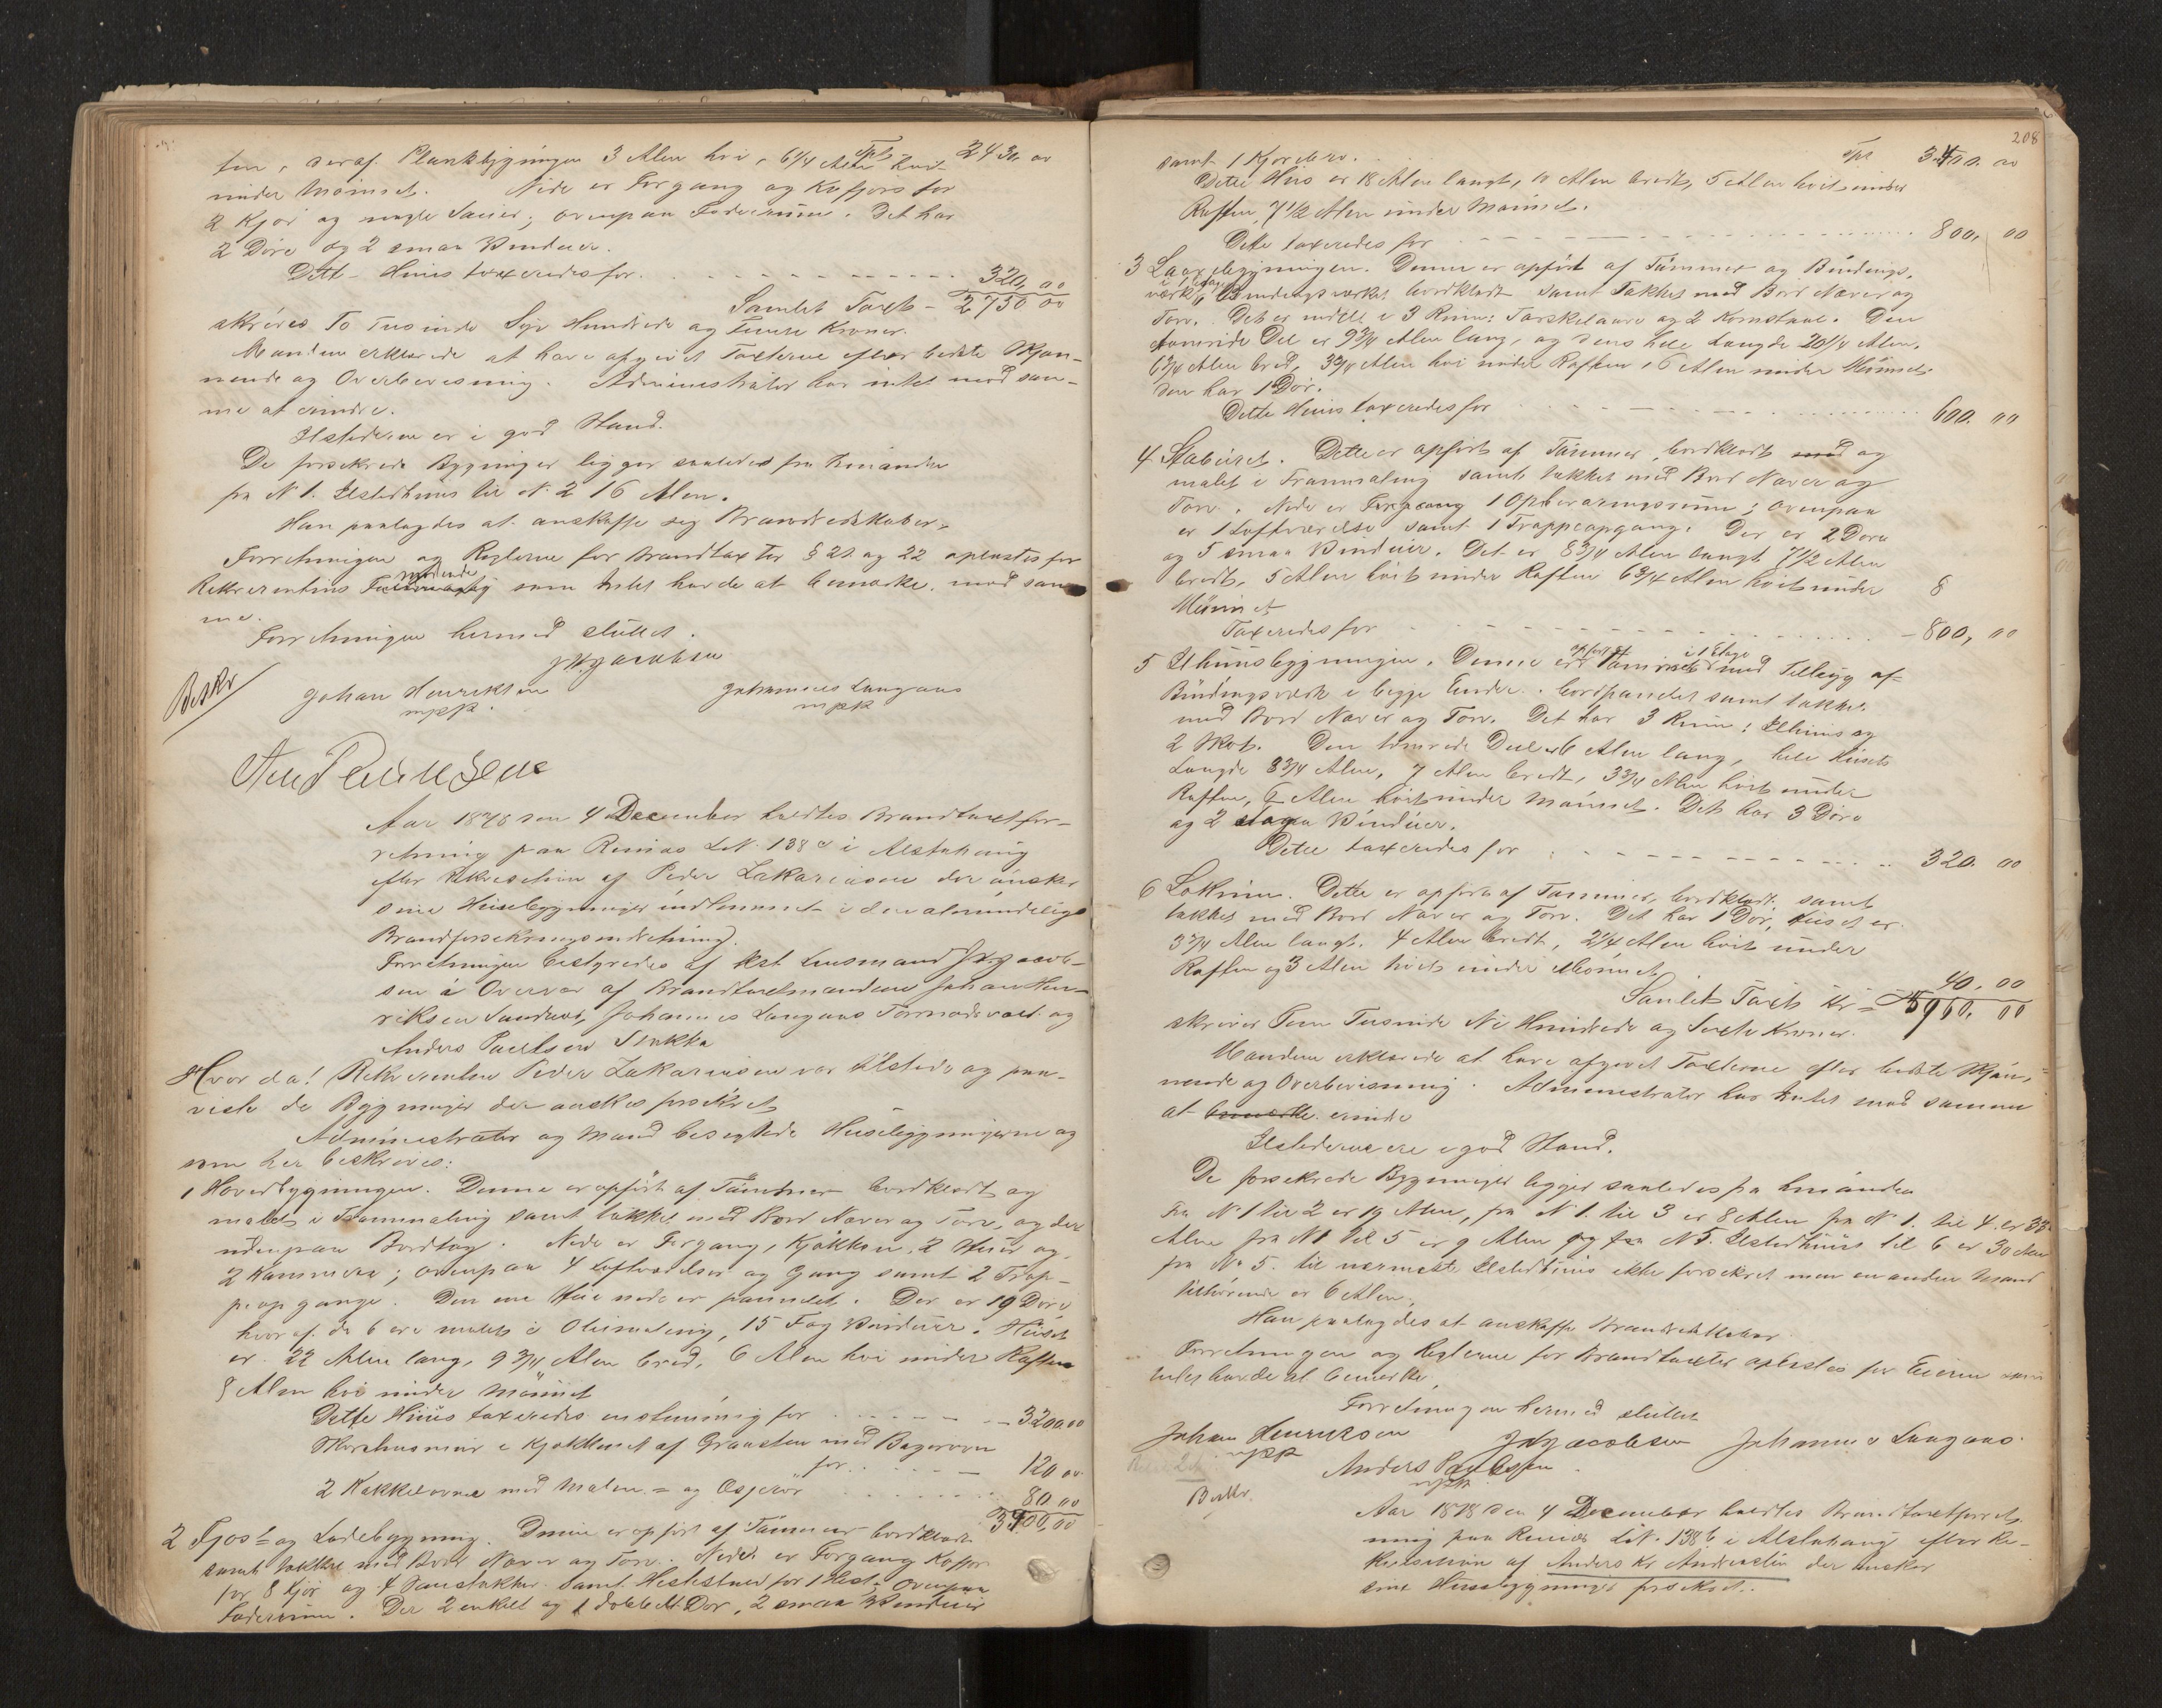 ten, deraf Plankbygningen 3 Alen høi, 6 1/4 Alen høit Tpt 2430. 00
under Mønniset. Nede er Forgang og Kofjøs for
2 Kjør og nogle Sauer; ovenpaa Foderrum. Det har
2 Døre og 2 smaa Vinduer.
Dette Huus taxeredes for. 320, 00
Samlet Taxt - 2750 00
skrives To Tusinde Syv Hundrede og Kroner.
Mændene erklærede at have afgivet Taxterne efter bedste Skjøn-
nende og Overbevisning. Administrator har intet mod sam-
me at erindre.
Ildstederne er i god Stand.
De forsekrede Bygninger ligger saaledes fra hinanden
fra No 1. Ildsted huus til No. 2 16 Alen.
Han paalagdes at anskaffe sig Brandredskaber.
Forretningen og Reglerne for Brandtaxter § 21 og 22 oplæstes for
Rekvirentens som Intet havde at bemærke mod sam
me.
Forretningen hermed sluttet.
JHJacobsen
Beskr Johan Henriksen Johannes Langaas
mpp. mpk
Aar 1878 den 4 December holdtes Brandtaxtfor-
retning paa Remnes LN. 138 a i Alstahaug
efter Rekvisition af Peder Zakariasen der ønsker
sine Huusbygninger indlemmet i den almindelige
Brandforsekringsindretning.
Forretningen bestyredes af kst Lensmand JHJacob-
sen i Overvær af Brandtaxtmændene Johan Hen-
riksen Sandnes, Johannes Langaas og
Anders Paulsen Stokka
Hvor da! Rekvirenten Peder Zakariasen var tilstede og paa-
viste de Bygninger der ønskes forsekret
Administrator og Mænd besigtede Huusbygningerne og
som her beskrives:
1 Hovedbygningen. Denne er opført af Tømmer bordklædt og
malet i Tranmaling samt tækket med Bord Næver og Torv, og der
udenpaa Bordtag. Nede er Forgang, Kjøkken, 2 Stuer og
2 Kammere; ovenpaa 4 Loftværelser og Gang samt 2 Trap-
peopgange. Den ene Stue nede er panelet. Der er 19 Døre
hvoraf de 6 ere malet i Oliemaling, 15 Fag Vinduer. Huset
er 22 Alen lang, 9 3/4 Alen bred, 6 Alen høi under Raften
8 Alen høi under Mønniset
Dette Huus taxeredes enstemmig for 3200 00
Skorstensmuur i Kjøkkenet af Graasten med Bagerovn
for 120 00
2 Kakkelovne med Malm- og Csjerør 80 00
3400,00
2 Fjøs- og Ladebygning. Denne er opført af Tømmer bordklædt
samt tækket med Bord Næver og Torv. Nede er Forgang Kofjøs
for 8 Kjør og 4 samt Hestestald for 1 Hest; ovenpaa
Foderrum. Der 2 enkelt og 1 dobbelt Dør, 2 smaa Vinduer
208
samt 1 Kjøredør. Tpt 3400. 00
Dette Huus er 18 Alen langt, 10 Alen bredt, 5 Alen høit under
Raften, 7 1/2 Alen under Mønniset.
Dette taxeredes for 800, 00
3 Laavebygningen. Denne er opført af Tømmer og Bindings-
værk, i 1 Etage Bindingsværket bordklædt samt Tækket med Bord Næver og
Torv. Det er inddelt i 3 Rum: Tærskelaave og 2 Kornstaal. Den
tømrede Del er 9 3/4 Alen lang, og dens hele Længde 20 1/4 Alen,
6 3/4 Alen bred, 3 3/4 Alen høi under Raften, 6 Alen under Mønniset
Den har 1 Dør.
Dette Huus taxeredes for 600. 00
4 Staburet. Dette er opført af Tømmer, bordklædt med og
malet i Tranmaling samt tækket med Bord Næver og
Torv. Nede er Forgang 1 Opbevaringsrum; ovenpaa
er 1 Loftværelse samt 1 Trappeopgang. Der er 2 Døre
og 5 smaa Vinduer. Det er 8 3/4 Alen langt 7 1/2 Alen
bredt, 5 Alen høit under Raften 6 3/4 Alen høit under 8
Mønniset
Taxeredes for 800, 00
5 Ildhuusbygningen. Denne er opført af Tømmer i 1 Etage med Tilbyg af
Bindingsværk i begge Ender, bordpanelet samt tækket
med Bord Næver og Torv. Det har 3 Rum: Ildhuus og
2 Skot. Den tømrede Deel er 6 Alen lang, hele Husets
Længde 8 3/4 Alen, 7 Alen bredt, 3 3/4 Alen høit under
Raften, 6 Alen høit under Mønniset. Det har 3 Døre
og 2 Vinduer.
Dette taxeredes for 320. 00
6 Lokrum. Dette er opført af Tømmer, bordklædt samt
tækket med Bord Næver og Torv. Det har 1 Dør, Huset er
3 3/4 Alen langt, 4 Alen bredt, 2 1/4 Alen høit under
Raften og 3 Alen høit under Mønniset 40. 00
Samlet Taxt Kr - 5960. 00
skriver Fem Tusinde Ni Hundrede og Sexti Kroner.
Mændene erklærede at have afgivet Taxterne efter bedste Skjøn-
nende og Overbevisning. Administrator har Intet mod samme
at bemærke erindre
Ildstederne ere i god Stand.
De forsekrede Bygninger ligger saaledes fra hinanden
Fra No 1 til 2 er 19 Alen, fra No 1. til 3 er 8 Alen fra No 1. til 4. er 38
Alen fra No 1 til 5 er 9 Alen og fra No 5. Ildstedhuus til 6 er 30 Alen
fra No 5. til nærmeste Ildstedhuus ikke forsekret men en anden Mand
tilhørende er 6 Alen.
Han paalagdes at anskaffe Brandredskaber.
Forretningen og Reglerne for Brandtaxter oplæstes for Eieren som
Intet havde at bemærke.
Forretningen hermed sluttet
Johan Henriksen JHJacobsen Johannes Langaas.
mpp Anders Paulsen
mpk
Beskr.
Aar 1878 den 4 December holdtes Brandtaxtforret-
ning paa Remnes LN. 138 b i Alstahaug efter Re-
kvisition af Anders Kr Andersen der ønsker
sine Huusbygninger forsekret.